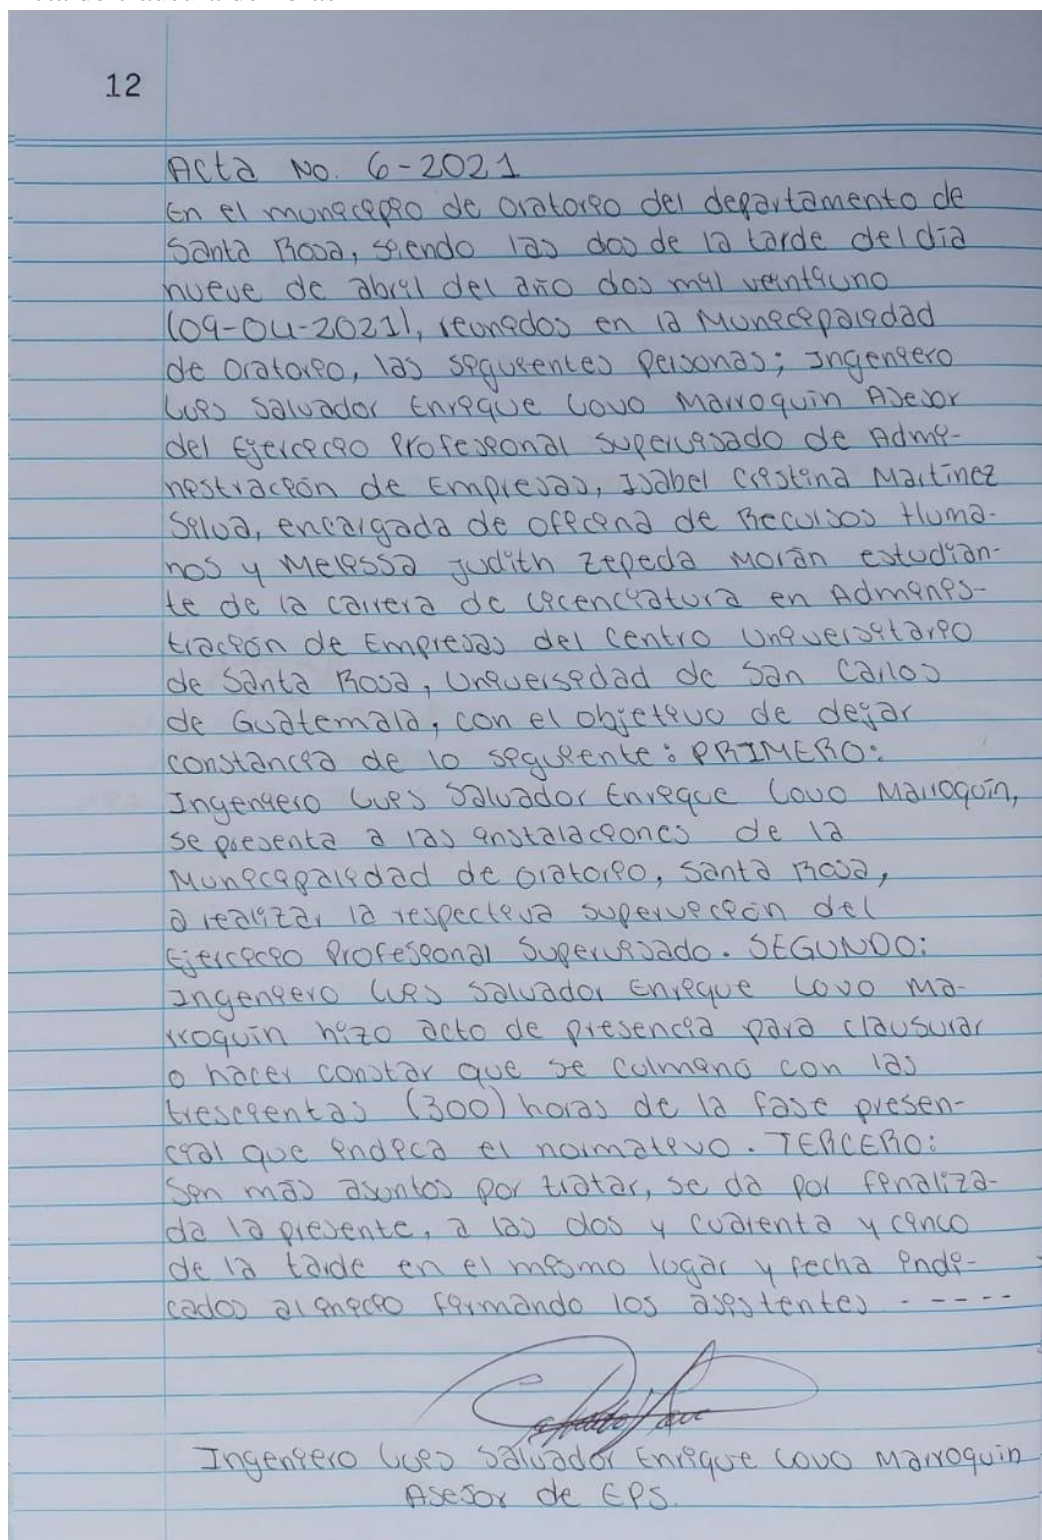 12
Acta No. 6-2021
En el municipio de Oratorio del departamento de
Santa Rosa, siendo las dos de la tarde del día
nueve de abril del año dos mil veintiuno
(09-04-2021), reunidos en la Municipalidad
de Oratorio, las siguientes personas; Ingeniero
Luis Salvador Enrique Lovo Marroquin Asesor
del Ejercicio Profesional Supervisado de Admi-
nistración de Empresas, Isabel Cristina Martínez
Silva, encargada de oficina de Recursos Huma-
nos y Melissa Judith Zepeda Morán estudian-
te de la carrera de Licenciatura en Adminis-
tración de Empresas del Centro Universitario
de Santa Rosa, Universidad de San Carlos
de Guatemala, con el objetivo de dejar
constancia de lo siguiente: PRIMERO:
Ingeniero Luis Salvador Enrique Lovo Marroquín,
se presenta a las instalaciones de la
Municipalidad de Oratorio, Santa Rosa,
a realizar la respectiva supervición del
Ejercicio Profesional Supervisado. SEGUNDO:
Ingeniero Luis Salvador Enrique Lovo Ma-
rroquín hizo acto de presencia para clausurar
o hacer constar que se culminó con las
trescientas (300) horas de la fase presen-
cial que indica el normativo. TERCERO:
Sin más asuntos por tratar, se da por finaliza-
da la presente, a las dos y cuarenta y cinco
de la tarde en el mismo lugar y fecha indi-
cados al inicio firmando los asistentes - - - - -
Ingeniero Luis Salvador Enrique Lovo Marroquin
Asesor de EPS.